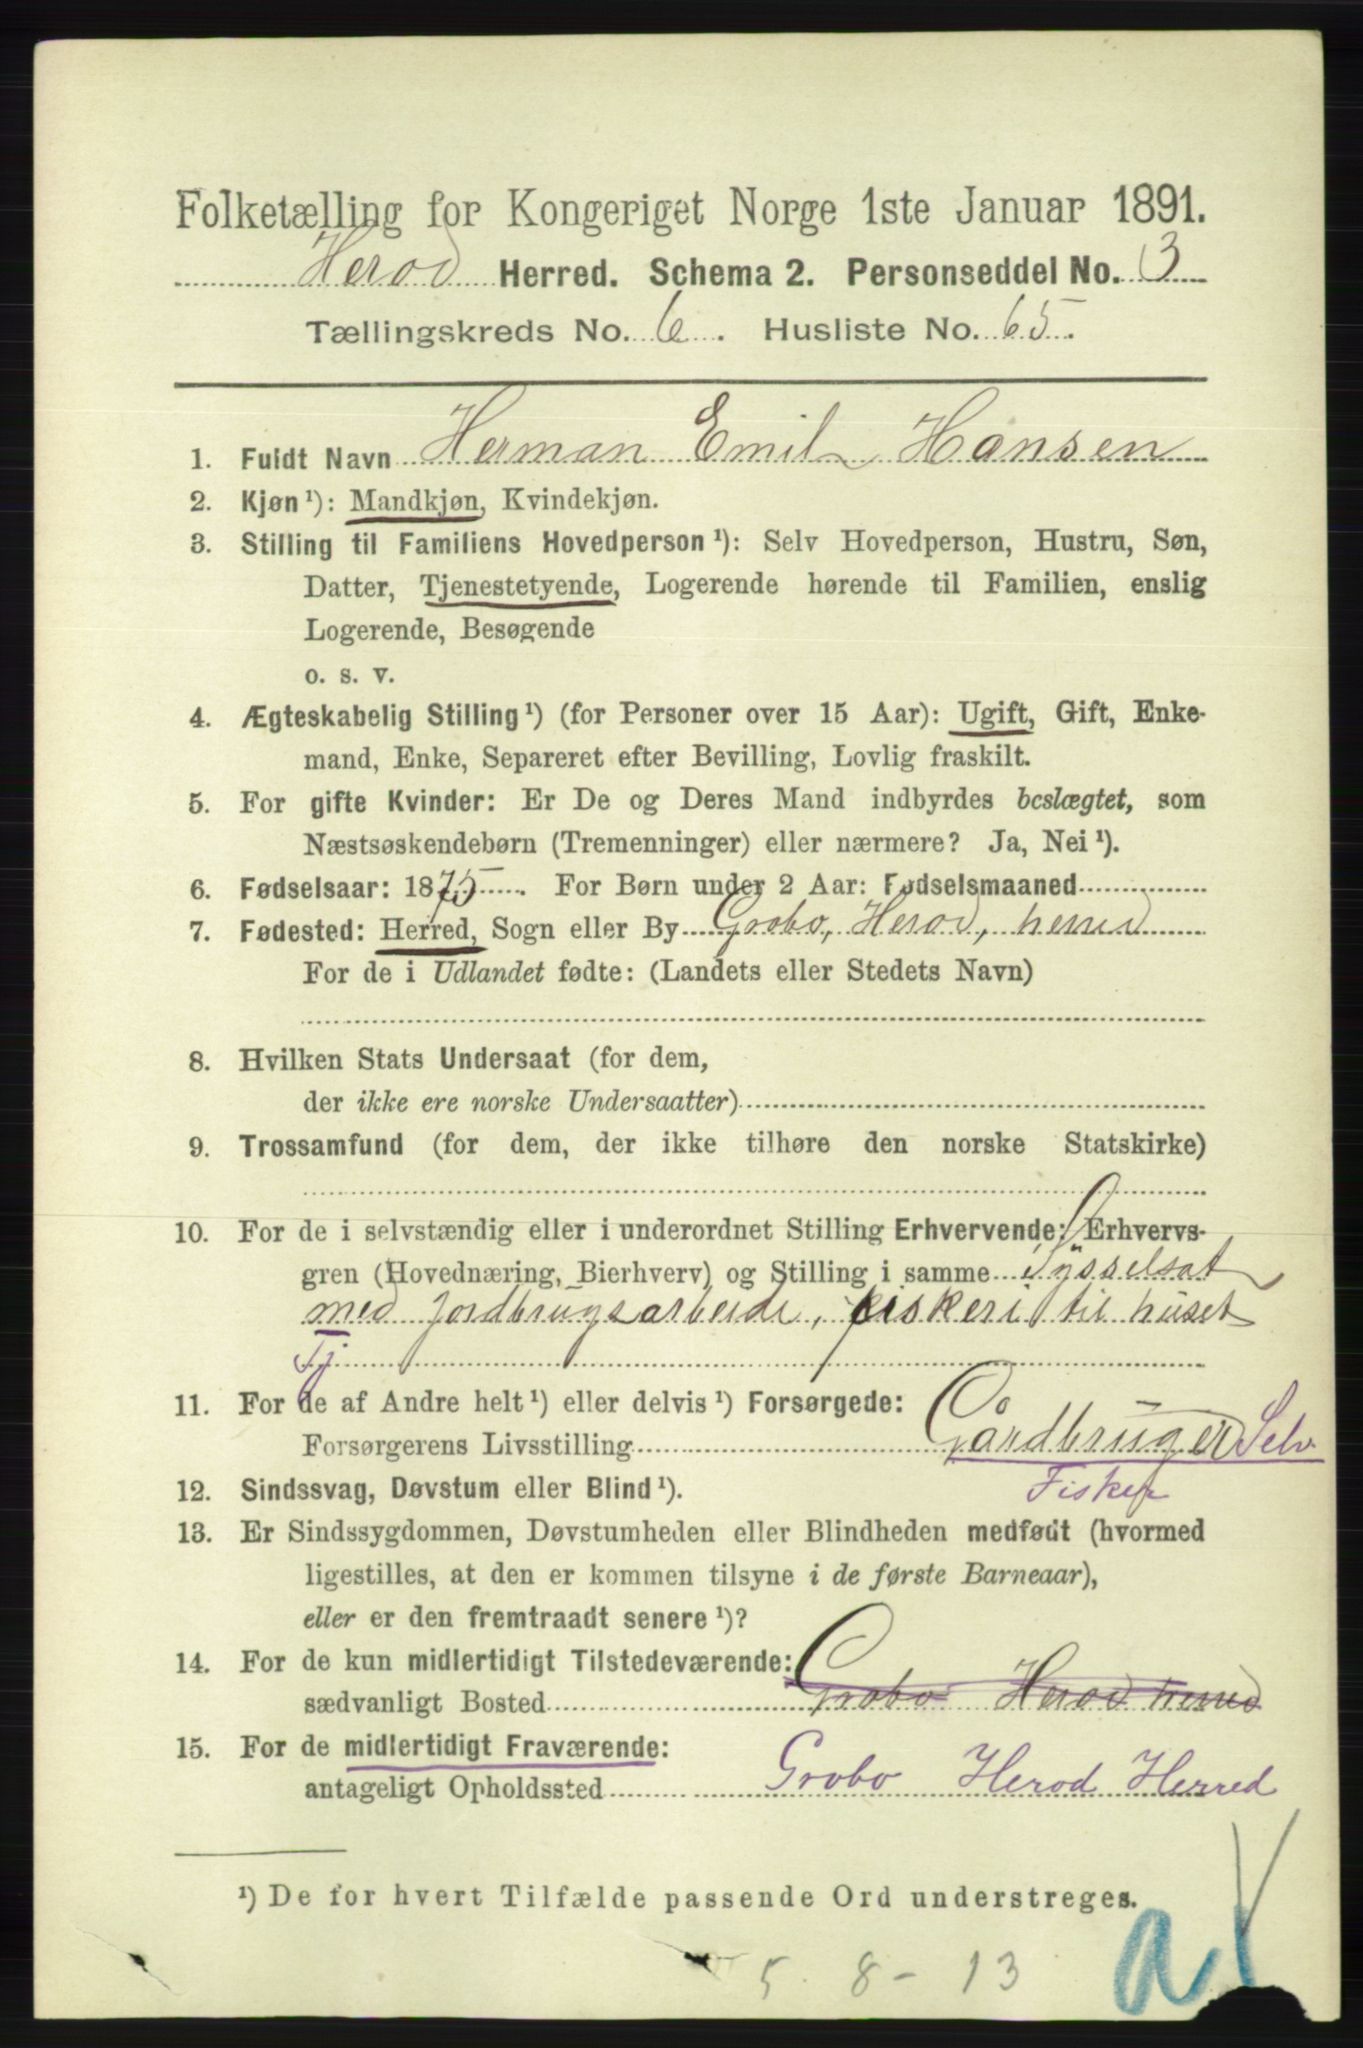 Folketælling for Kongeriget Norge 1ste Januar 1891.
Herod Herred. Schema 2. Personseddel No. 3
Tællingskreds No. 6. Husliste No. 65.
1. Fuldt Navn Herman Emil Hansen
2. Kjøn¹): Mandkjøn, Kvindekjøn.
3. Stilling til Familiens Hovedperson¹): Selv Hovedperson, Hustru, Søn,
Datter, Tjenestetyende, Logerende hørende til Familien, enslig
Logerende, Besøgende
o. s. v.
4. Ægteskabelig Stilling¹) (for Personer over 15 Aar): Ugift, Gift, Enke-
mand, Enke, Separeret efter Bevilling, Lovlig fraskilt.
5. For gifte Kvinder: Er De og Deres Mand indbyrdes beslægtet, som
Næstsøskendebørn (Tremenninger) eller nærmere? Ja, Nei¹).
6. Fødselsaar: 1875. For Børn under 2 Aar: Fødselsmaaned
7. Fødested: Herred, Sogn eller By Grobo, Herod, herred
For de i Udlandet fødte: (Landets eller Stedets Navn)
8. Hvilken Stats Undersaat (for dem,
der ikke ere norske Undersaatter)
9. Trossamfund (for dem, der ikke tilhøre den norske Statskirke)
10. For de i selvstændig eller i underordnet Stilling Erhvervende: Erhvervs-
gren (Hovednæring, Bierhverv) og Stilling i samme Sysselsat
med jordbrugsarbeide, fiskeri til huset
Tj
11. For de af Andre helt¹) eller delvis¹) Forsørgede:
Forsørgerens Livsstilling Gårdbruger Selv
Fisker
12. Sindssvag, Døvstum eller Blind¹).
13. Er Sindssygdommen, Døvstumheden eller Blindheden medfødt (hvormed
ligestilles, at den er kommen tilsyne i de første Barneaar),
eller er den fremtraadt senere¹)?
14. For de kun midlertidigt Tilstedeværende:
sædvanligt Bosted Grobo Herod herred
15. For de midlertidigt Fraværende:
antageligt Opholdssted Grobo Herod Herred
¹) De for hvert Tilfælde passende Ord understreges.
5 8 - 13